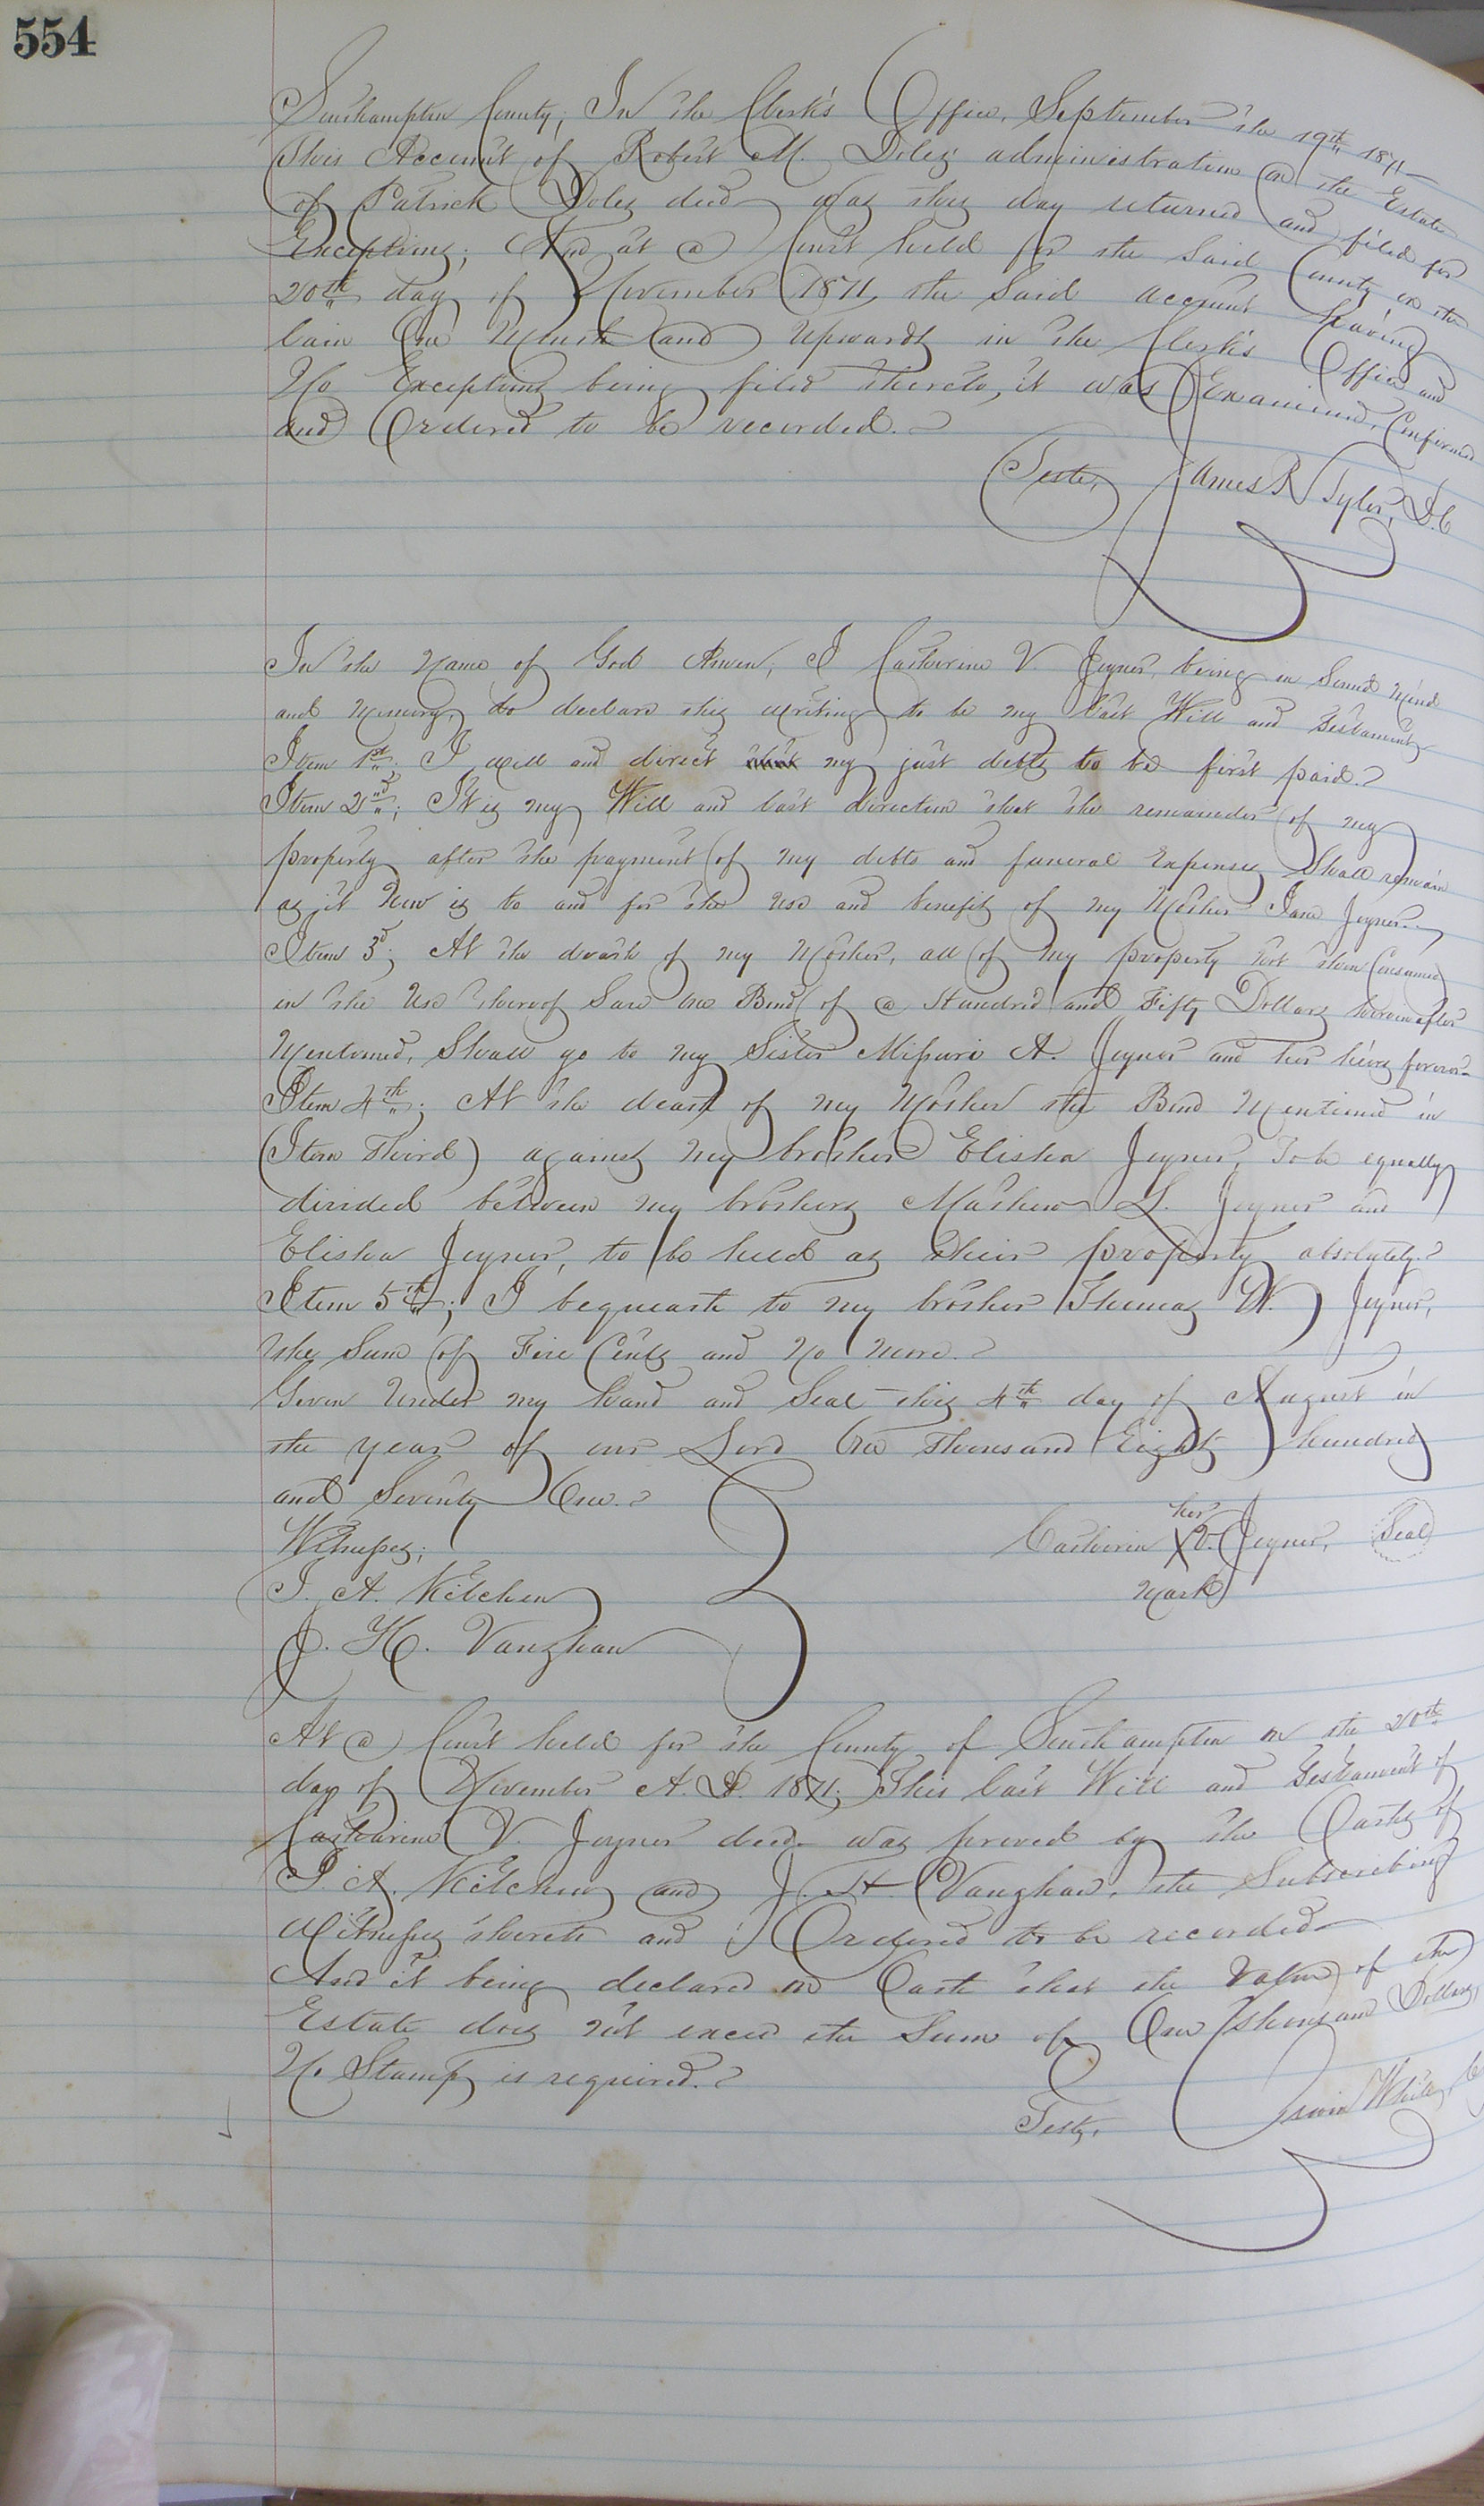 554
Southampton County; In the Clerk's Office, September the 19th 1871
This Account of Robert M. Doles administration on the Estate
of Patrick Doles decd was this day returned and filed for
Exceptions; And at a Court held for the said County on the
20th day of November 1871, the said account having
lain One Month and Upwards in the Clerk's Office and
No Exceptions being filed thereto, it was Examined, Confirmed
and Ordered to be recorded.
Teste, James R Tyler, D.C
In the Name of God Amen, I Catherine V. Joyner, being in Sound Mind
and Memory, do declare this writing to be my last Will and Testament
Item 1st. I will and direct my just debts to be first paid.
Item 2nd; It is my Will and last direction that the remainder of my
property after the payment of my debts and funeral Expenses Shall remain
as it Now is to and for the use and benefit of my Mother Jane Joyner.
Item 3d; At the death of my Mother, all of my property not then Consumed
in the Use thereof Save One Bond of a Hundred and Fifty Dollars hereinafter
Mentioned, Shall go to my Sister Missouri A. Joyner and her heirs forever
Item 4th; At the death of my Mother the Bond Mentioned in
(Item Third) against my brother Elisha Joyner, To be equally
divided between my brothers Mathew L. Joyner and
Elisha Joyner, to be held as their property absolutely.
Item 5th; I bequeath to my brother Thomas W. Joyner,
the Sum of Five Cents and No More.
Given Under my hand and Seal this 4th day of August in
the year of our Lord One Thousand Eight hundred
and Seventy One.
Witnesses;
her
Catherine X V. Joyner, Seal
mark
J. A. Kitchen
J. H. Vaughan
At a Court held for the County of Southampton on the 20th
day of November A. D. 1871; This last Will and Testament of
Catharine V. Joyner decd was proved by the Oaths of
J. A. Kitchen and J. H. Vaughan, the Subscribing
Witnesses thereto and Ordered to be recorded
And it being declared on Oath that the Value of the
Estate does not exceed the Sum of One Thousand Dollars,
No Stamp is required.
Teste, White,